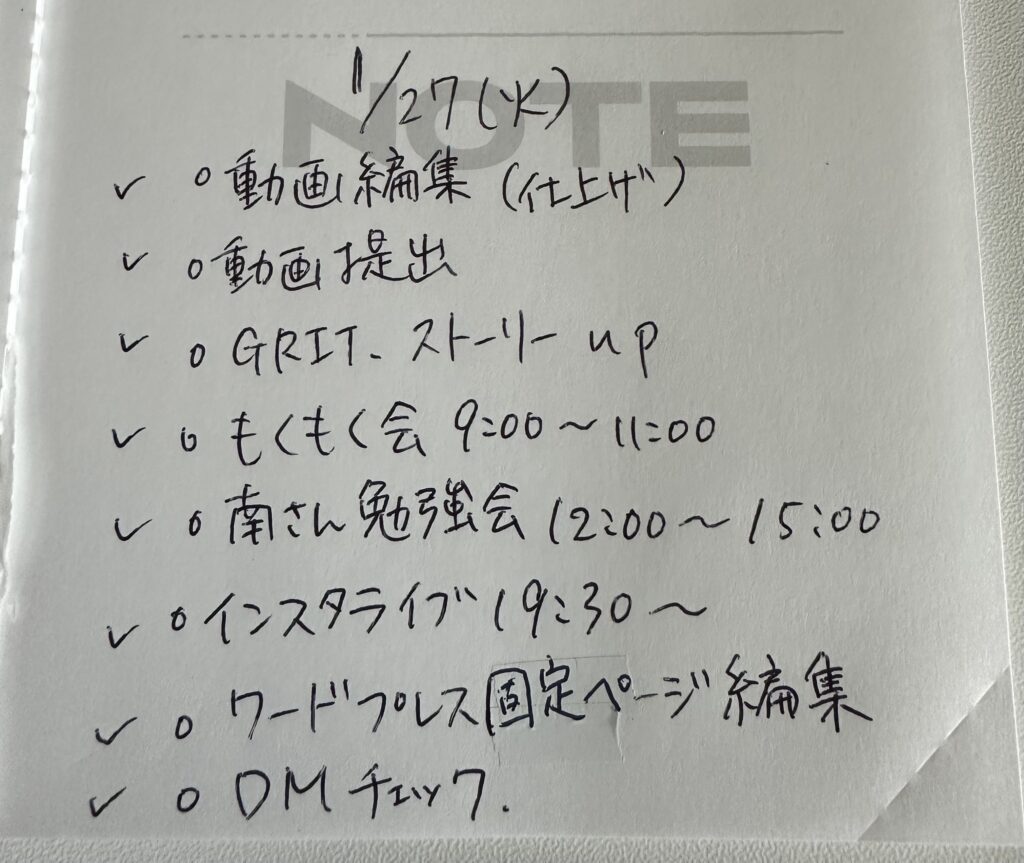 NOTE
1/27(火)
✓ ○ 動画編集 (仕上げ)
✓ ○ 動画提出
✓ ○ GRIT、ストーリー up
✓ ○ もくもく会 9:00〜11:00
✓ ○ 南さん勉強会 12:00〜15:00
✓ ○ インスタライブ 19:30〜
✓ ○ ワードプレス固定ページ編集
✓ ○ DMチェック.